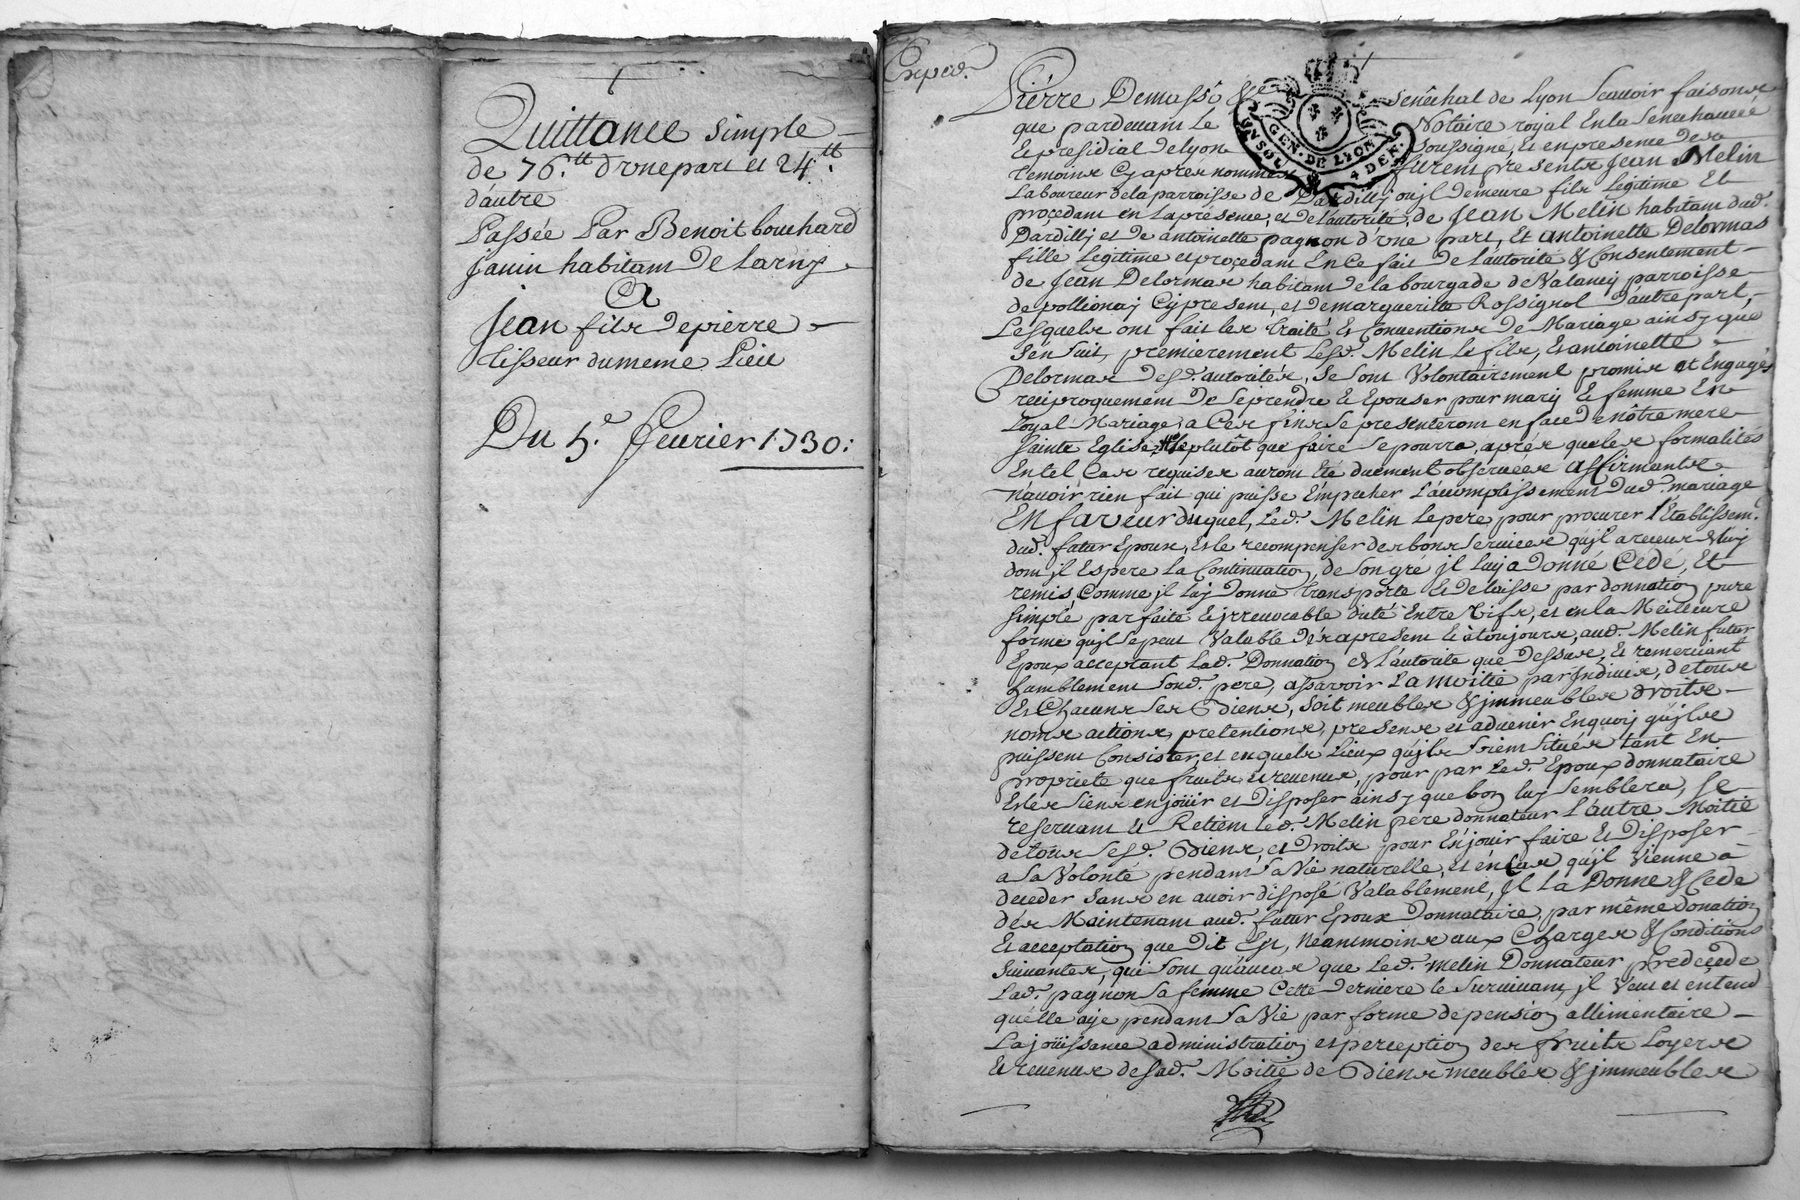 Quittance simple
de 76.tt d'vne part et 24.tt
d'autre
Passée Par Benoit bouchard
habitant de Larny
A
Jean fils de pierre
tisseur du meme Lieu
Du 5.e feurier 1730:
Exped.
Pierre Demasso &c Senêchal de Lyon Scauoir faisons
que pardeuant Le Notaire royal En la Senechaucée
Et presidial de Lyon Soussigné, et en presence des
temoins Cy apres nommés furent presents Jean Melin
GEN. DE LYON
4 DEN.
Laboureur de la parroisse de Dardilly ou jl demeure fils Legitime Et
procedant en La presence, et de l'autorité, de Jean Melin habitant dud.
Dardilly et de antoinette pagnon d'vne part, Et antoinette Delormas
fille Legitime et procedant En Ce fait de L'autorité & Consentement
de Jean Delormas habitant de la bourgade de Valancy parroisse
de pollionay Cy present, et de margueritte Rossignol d'autre part,
Lesquels ont fait les traité & Conuentions de Mariage ainsy que
s'en suit, premierement Lesd. Melin le fils, Et antoinette
Delormas desd. autorités, se sont Volontairement promis et Engagés
reciproquement de se prendre & Epouser pour mary & femme En
Loyal Mariage, a Ces fins se presenteront en face de nôtre mere
sainte Eglise, le plutôt que faire se pourra, aprés que les formalités
En tel Cas requises auront été duement obseruées affirmants
n'auoir rien fait qui puisse Empecher L'acomplissement dud. mariage
EN faveur duquel, Led. Melin le pere pour procurer l'Etablissem.t
dud. futur Epoux, Et le recompenser des bons seruices qu'jl a receus de luy
dont jl Espere La Continuation, de son gré jl luy a Donné Cédé, Et
remis Comme jl luy Donne transporte & delaisse par donnation pure
simple parfaite & jrreuocable ditte Entre Vifs, et en la Meilleure
forme qu'jl se peut Valable dés a present & à toujours, aud. Melin futur
Epoux acceptant Lad. Donnation de L'autorité que dessus, & remerciant
humblement sond. pere, assavoir La moitié par Jndiuis, de tous
Et Chacuns ses Biens, soit meubles & jmmeubles droits
noms actions, pretentions, presens et aduenir En quoy qu'jls
puissent Consister, et en quels Lieux qu'jls soient situés tant En
proprieté que fruits et reuenus, pour par Led. Epoux donnataire
Et les siens en joüir et Disposer ainsy que bon luy semblera, se
reseruant & Retient Led. Melin pere donnateur L'autre Moitié
de tous sesd. Biens, et Droits pour En joüir faire Et Disposer
a sa Volonté pendant sa Vie naturelle, et en Cas qu'jl Vienne à
deceder sans en auoir disposé Valablement, Jl La Donne & Cede
dés Maintenant aud. futur Epoux Donnataire, par même donation
Et acceptation que Dit Est, Neantmoins aux Charges & Conditions
suiuantes, qui sont qu'au Cas que Led. melin Donnateur predecede
Lad. pagnon sa femme Cette Derniere le suruiuant, jl Veut et entend
qu'elle aye pendant sa Vie par forme de pension allimentaire
La joüissance administration et perception des fruits Loyers
& reuenus de sad. Moitié de Biens meubles & jmmeubles